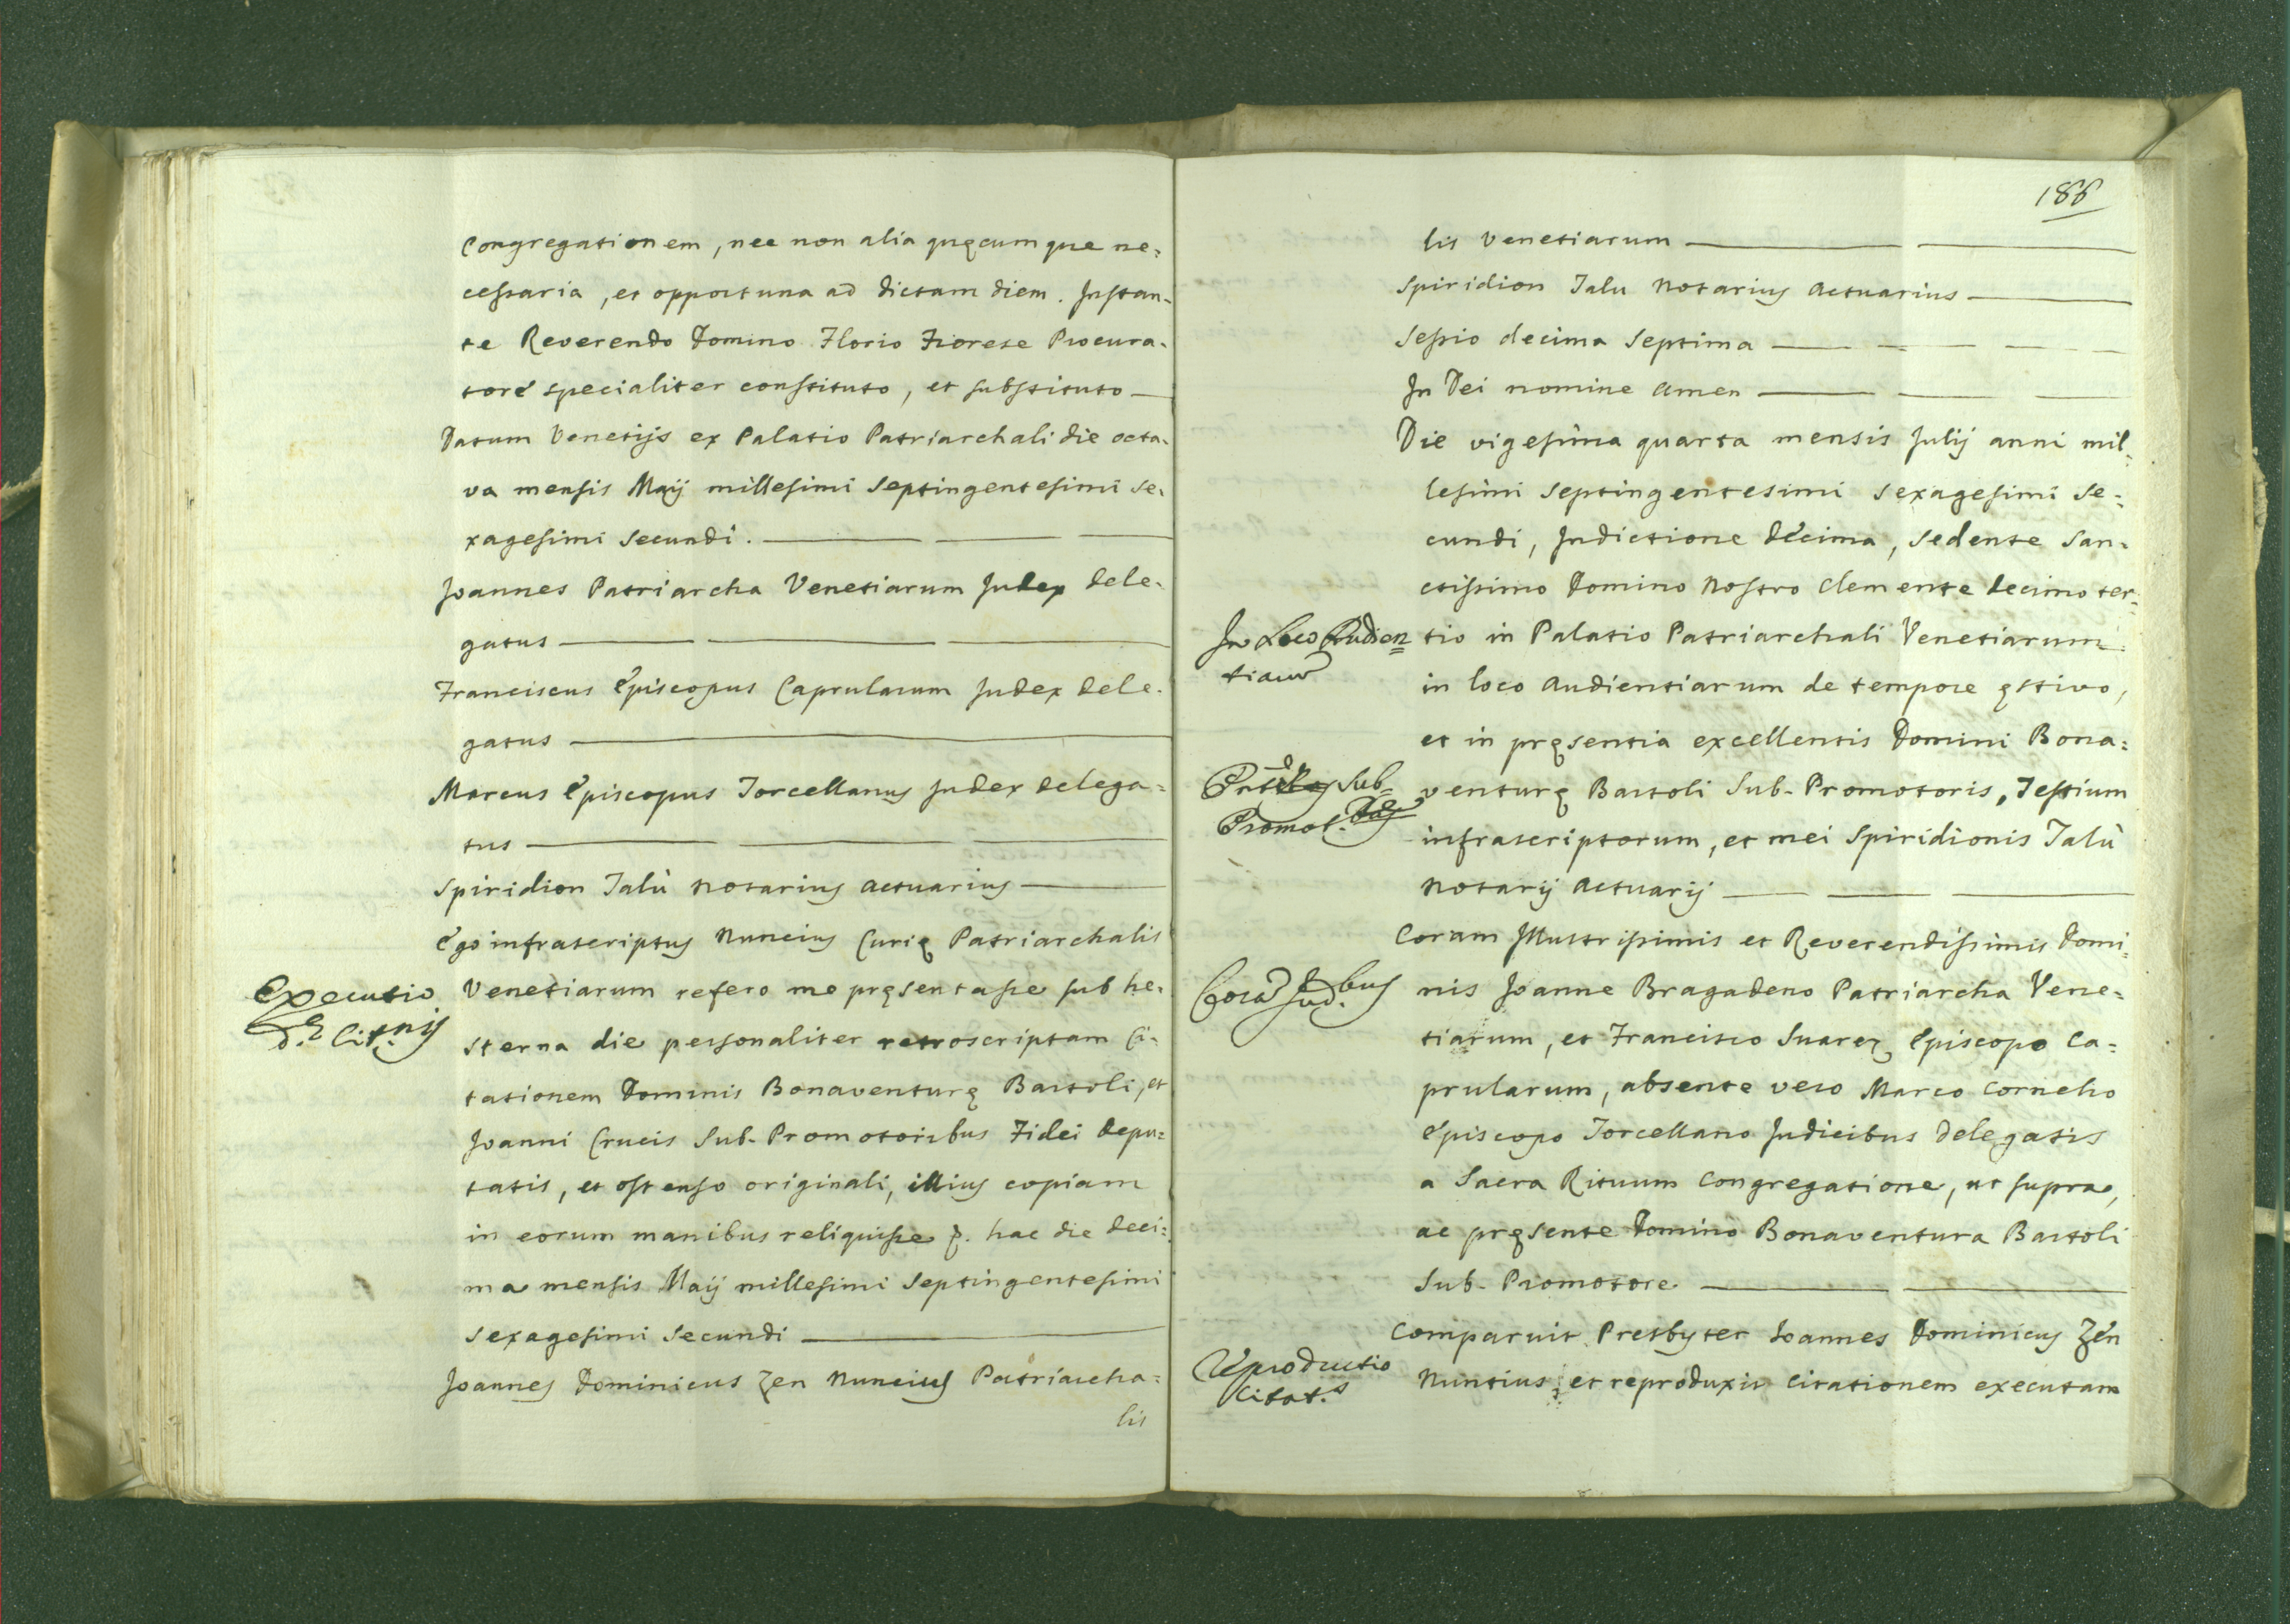 Congregationem, nec non alia quęcumque ne=
cessaria, et opportuna ad dictam diem. Instan-
te Reverendo Domino Florio Fiorese Procura-
tore specialiter constituto, et substituto
Datum Venetijs ex Palatio Patriarchali die octa-
va mensis Maij millesimi septingentesimi se-
xagesimi secundi.
Joannes Patriarcha Venetiarum Judex dele-
gatus
Franciscus Episcopus Caprularum Judex dele-
gatus
Marcus Episcopus Torcellanus Judex delega=
tus
Spiridion Talù Notarius Actuarius
Ego infrascriptus Nuncius Curię Patriarchalis
Executio
Venetiarum refero me pręsentasse sub he-
Cit.nis
sterna die personaliter retroscriptam Ci-
tationem Dominis Bonaventurę Bartoli, et
Joanni Crucis Sub-Promotoribus Fidei depu=
tatis, et ostenso originali, illius copiam
in eorum manibus reliquisse hac die deci=
ma mensis Maij millesimi septingentesimi
sexagesimi secundi
Joannes Dominicus Zen Nuncius Patriarcha=
lis
186
lis Venetiarum
Spiridion Talu Notarius Actuarius
Sessio decima septima
In Dei nomine Amen
Die vigesima quarta mensis Julij anni mil=
lesimi septingentesimi sexagesimi se=
cundi, Indictione decima, sedente San=
ctissimo Domino Nostro Clemente decimo ter=
In Loco Audien=
tio in Palatio Patriarchali Venetiarum
tiarum
in loco Audientiarum de tempore ęstivo,
et in pręsentia excellentis Domini Bona=
Sub=
venturę Bartoli Sub-Promotoris, Testium
Promot.
infrascriptorum, et mei Spiridionis Talù
Notarij Actuarij
Coram Illustrissimis et Reverendissimis Domi=
Corã Jud.bus
nis Joanne Bragadeno Patriarcha Vene=
tiarum, et Francisco Suarez Episcopo Ca=
prularum, absente vero Marco Cornelio
Episcopo Torcellano Judicibus delegatis
a Sacra Rituum Congregatione, ut supra,
ac pręsente Domino Bonaventura Bartoli
Sub-Promotore
Comparuit Presbyter Joannes Dominicus Zen
Reproductio
Nuntius, et reproduxit Citationem executam
Citat.s